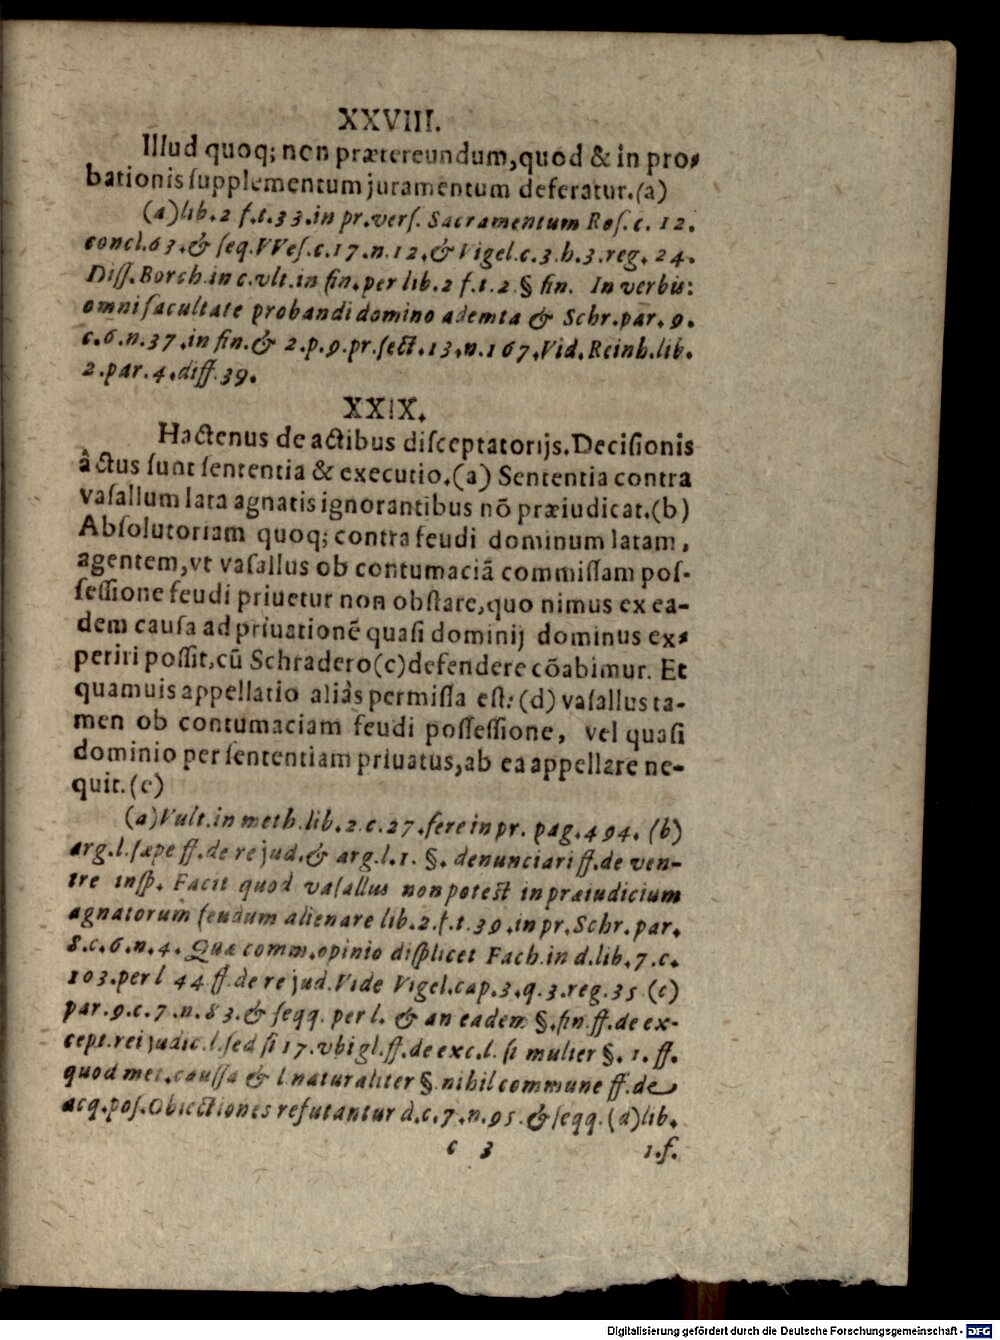 XXVIII.
Illud quoq; non prætereundum,quod & in pro-
bationis ſupplementum juramentum deferatur.(a)
(a)lib.2 f.t.33.in pr.verſ. Sacramentum Roſ.c. 12.
concl.63.& ſeq.VVeſ.c.17.n.12.& Vigel.c.3.h.3.reg. 24.
Diſſ.Borch.in c.vlt.in fin.per lib.2 f.t.2 § fin. In verbis:
omni facultate probandi domino ademta & Schr.par. 9.
c.6.n.37.in fin.& 2.p.9.pr.ſect.13.n.167.Vid.Reinh.lib.
2.par.4.diff.39.
XXIX.
Hactenus de actibus diſceptatorijs.Deciſionis
actus ſunt ſententia & executio.(a) Sententia contra
vaſallum lata agnatis ignorantibus nõ præiudicat.(b)
Abſolutoriam quoq; contra feudi dominum latam,
agentem,vt vaſallus ob contumaciã commiſſam poſ-
ſeſſione feudi priuetur non obſtare,quo nimus ex ea-
dem cauſa ad priuationẽ quaſi dominij dominus ex-
periri poſſit,cũ Schradero(c)defendere cõabimur. Et
quamuis appellatio aliàs permiſſa eſt:(d) vaſallus ta-
men ob contumaciam feudi poſſeſſione, vel quaſi
dominio per ſententiam priuatus,ab ea appellare ne-
quit.(e)
(a)Vult.in meth.lib.2.c.27.fere in pr. pag.494. (b)
arg.l.ſæpe ff.de re jud.& arg.l.1. §. denunciari ff.de ven-
tre inſp. Facit quod vaſallus non poteſt in præiudicium
agnatorum feudum alienare lib.2.f.t.39.in pr.Schr.par.
8.c.6.n.4. Quæ comm.opinio diſplicet Fach.in d.lib.7.c.
103.per l 44 ff.de re jud.Vide Vigel.cap.3.q.3.reg.35 (c)
par.9.c.7.n.83.& ſeqq. per l. & an eadem §.fin.ff.de ex-
cept.rei judic.l.ſed ſi 17.vbi gl.ff.de exc.l. ſi mulier §. 1. ff.
quod met.cauſſa & l naturaliter § nihil commune ff.de
acq.poſ.Obiectiones refutantur d.c.7.n.95.& ſeqq.(d)lib.
c 3 1.f.
Digitalisierung gefördert durch die Deutsche Forschungsgemeinschaft - DFG